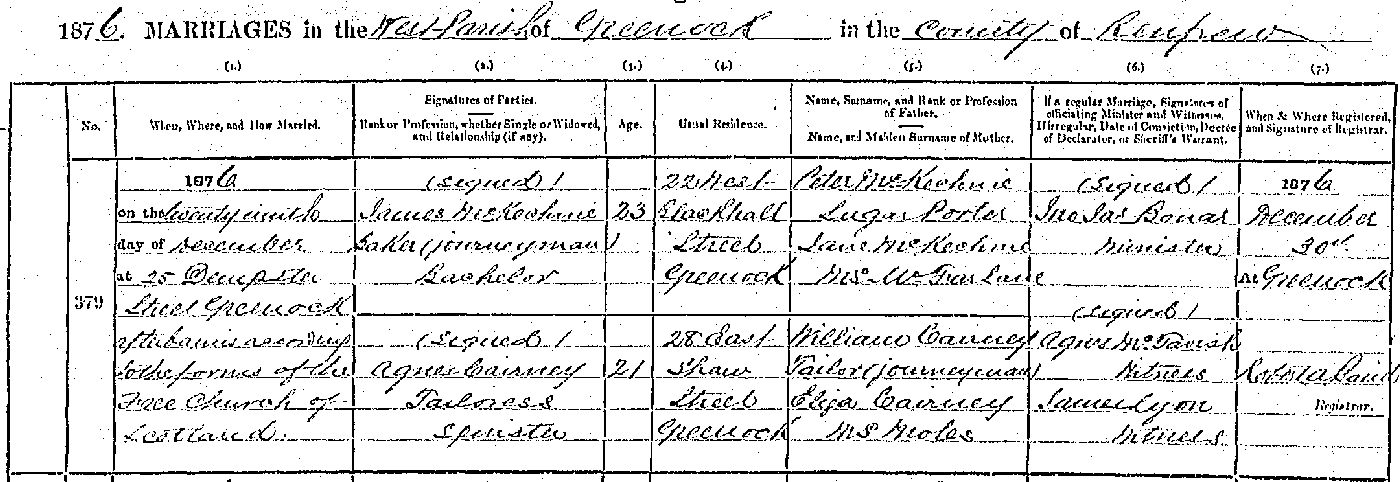 1876. MARRIAGES in the West Parish of Greenock in the County of Renfrew
(1.) (2.) (3.) (4.) (5.) (6.) (7.)
No.
When, Where, and How Married.
Signatures of Parties.
Rank or Profession, whether Single or Widowed,
and Relationship (if any).
Age.
Usual Residence.
Name, Surname, and Rank or Profession
of Father.
Name, and Maiden Surname of Mother.
If a regular Marriage, Signatures of
officiating Minister and Witnesses.
If irregular, Date of Conviction, Decree
of Declarator, or Sheriff's Warrant.
When & Where Registered,
and Signature of Registrar.
379
1876
on the twenty ninth
day of December
at 25 Dempster
Street Greenock
after banns according
to the forms of the
Free Church of
Scotland.
(signed)
James McKechnie
Baker (journeyman)
Bachelor
23
22 West
Blackhall
Street
Greenock
Peter McKechnie
Sugar Porter
Jane McKechnie
Ms. McFarlane
(signed)
Jno Jas Bonar
Minister
(signed)
Agnes McTavish
Witness
James Lyon
Witness
1876
December
30th
At Greenock
Registrar.
(signed)
Agnes Cairney
Tailoress
Spinster
21
28 East
Shaw
Street
Greenock
William Cairney
Tailor (journeyman)
Eliza Cairney
MS Moles